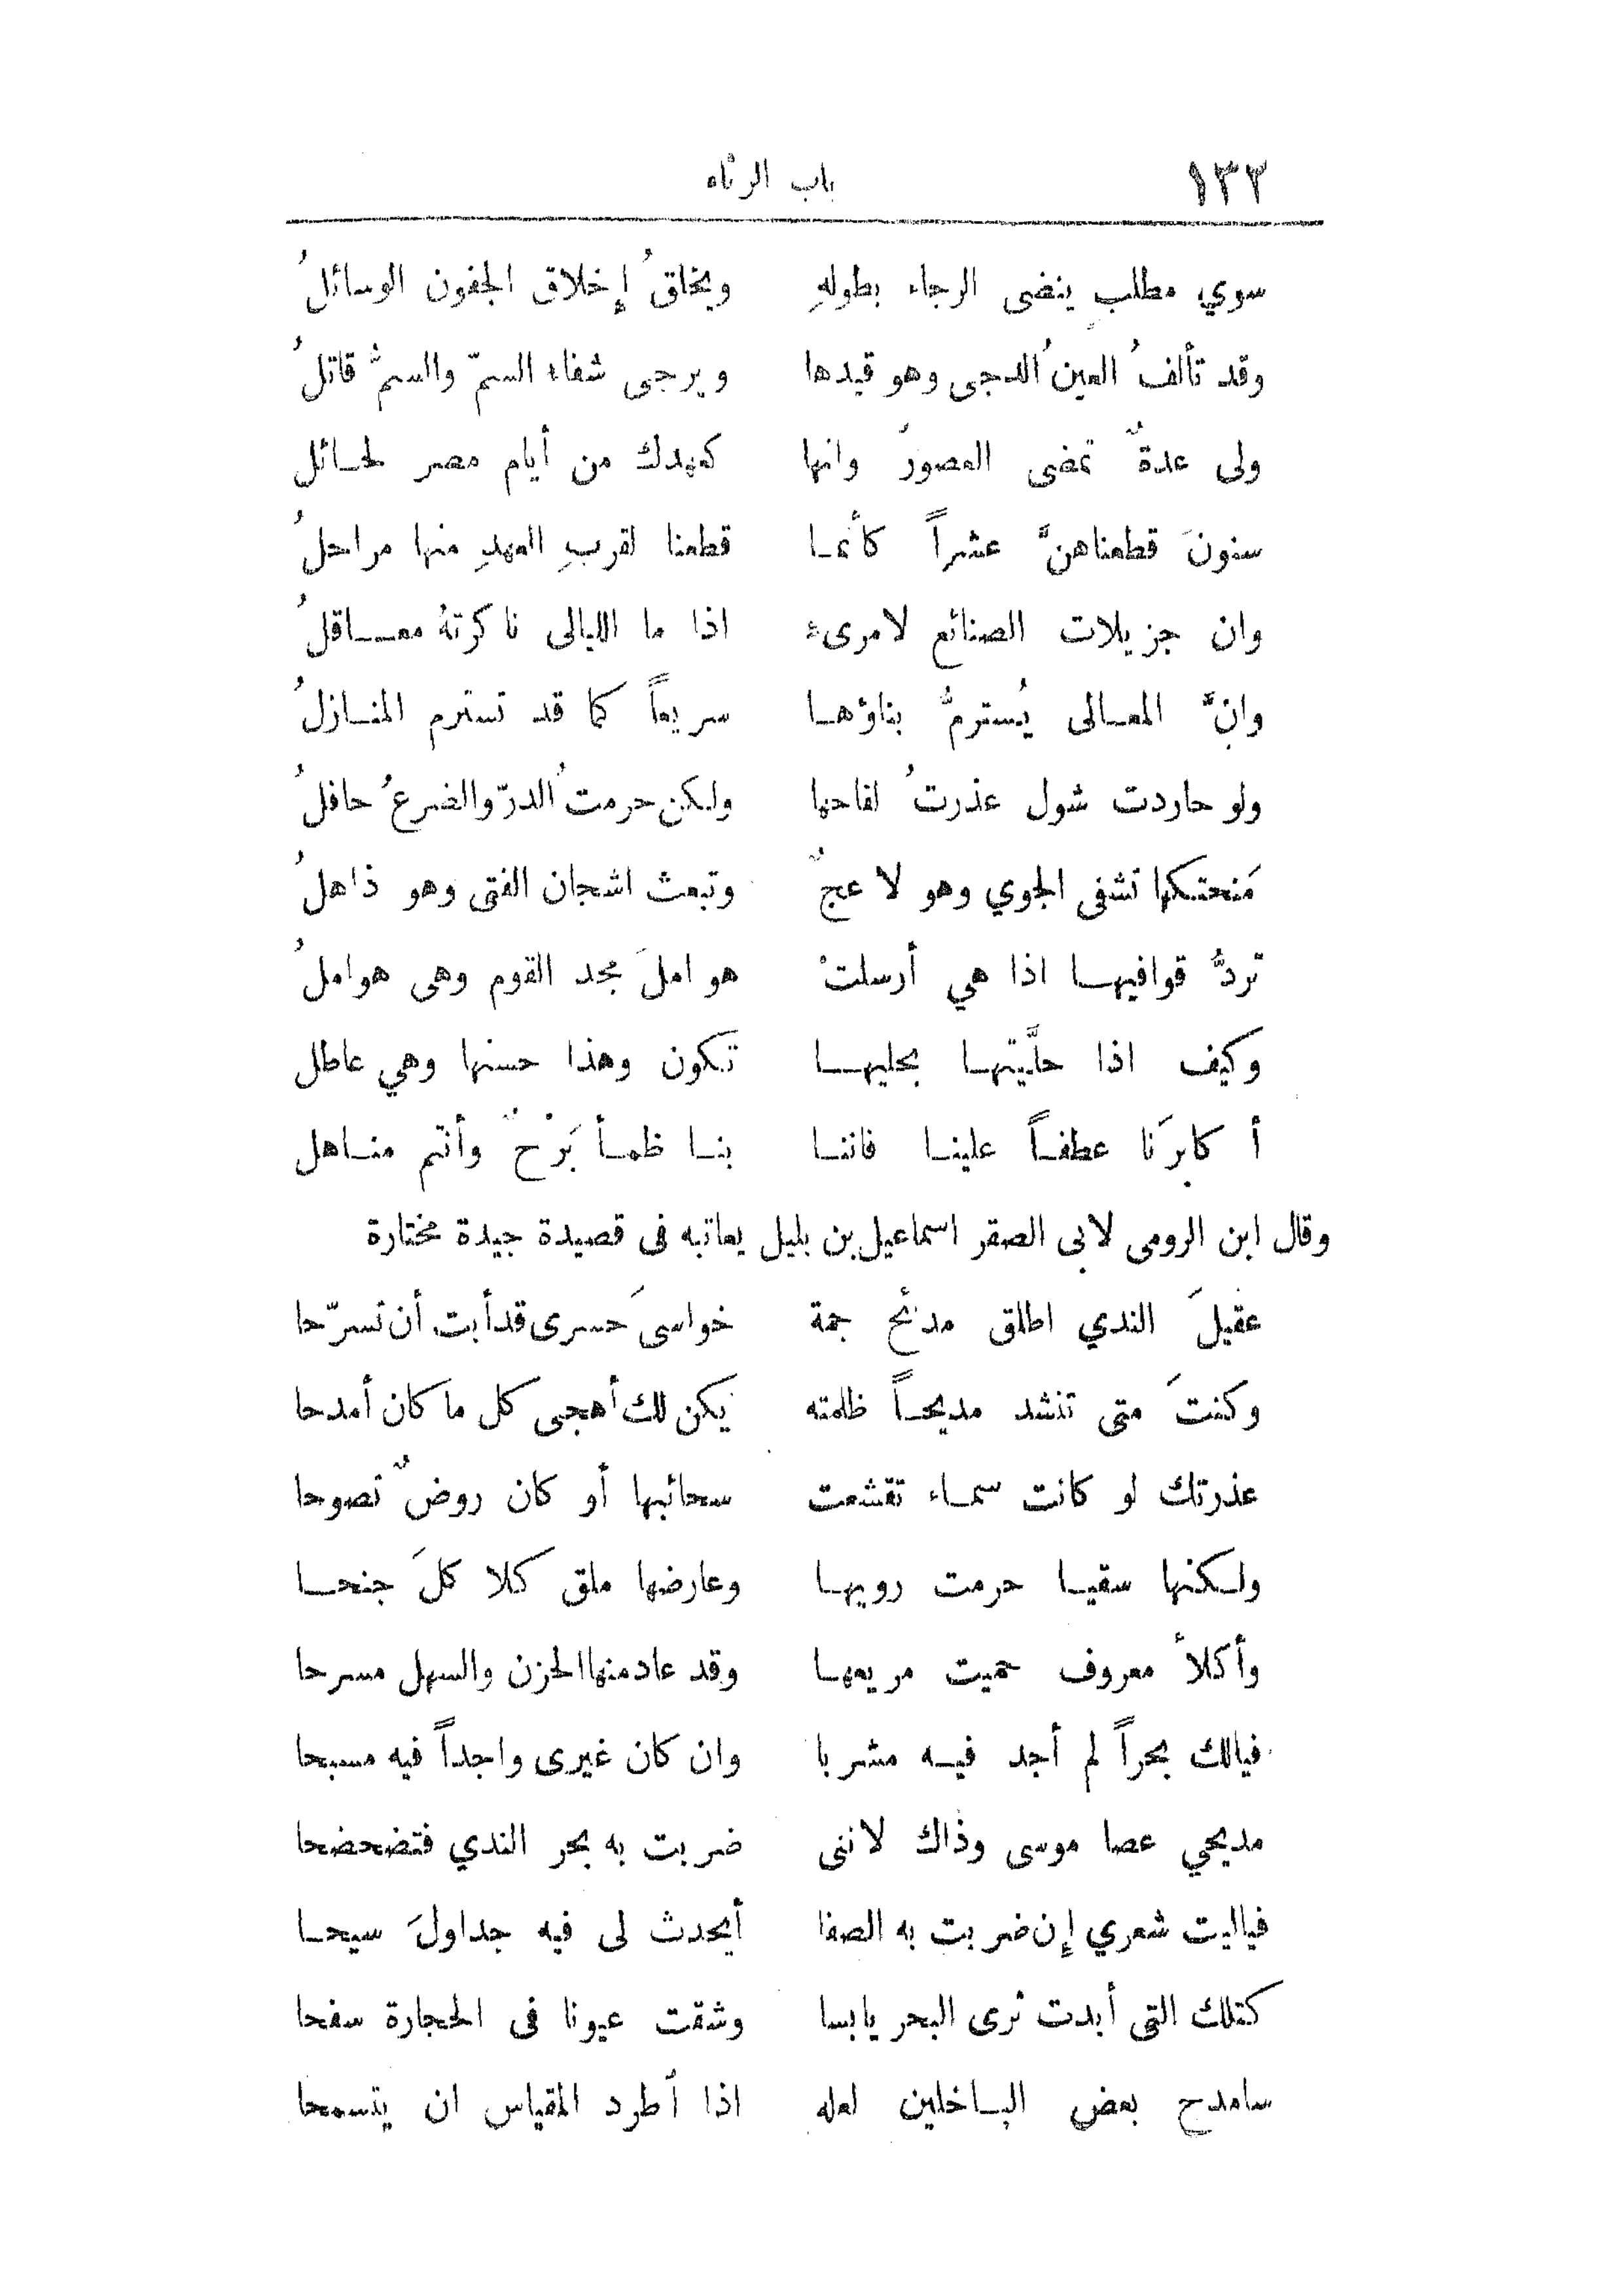 ١٣٢ باب الرثاء
سوي مطلبٍ ينضى الرجاء بطولهِ ويخلقُ إخلاق الجفون الوسائلُ
وقد تألفُ العينُ الدجى وهو قيدها ويرجى شفاء السمّ والسمُّ قاتلُ
ولى عدةٌ تمضى العصورَ وانها كعهدك من أيام مصر لحائل
سنونَ قطعناهنَّ عشراً كأنما قطعنا لقربِ العهدِ منها مراحلُ
وان جزيلات الصنائع لامرىء اذا ما الليالى ناكرتهُ معاقلُ
وانَّ المعالى يُسترمُّ بناؤها سريعاً كما قد تسترم المنازلُ
ولو حاردت شول عذرتُ لقاحها ولكن حرمتُ الدرّ والضرعُ حافلُ
مَنحتكها تشفى الجوي وهو لاعجٌ وتبعث اشجان الفتى وهو ذاهلُ
تردُّ قوافيها اذا هي أرسلتْ هواملَ مجد القوم وهى هواملُ
وكيف اذا حلَّيتها بحليها تكون وهذا حسنها وهي عاطل
أكابرَنا عطفاً علينا فاننا بنا ظمأ بَرْحٌ وأنتم مناهل
وقال ابن الرومى لابى الصقر اسماعيل بن بليل يعاتبه فى قصيدة جيدة مختارة
عقيلَ الندي اطلق مدئح جمة خواسىَ حسرى قد أبت أن تسرّحا
وكنتَ متى تنشد مديحاً ظلمته يكن لك أهجى كل ما كان أمدحا
عذرتك لو كانت سماء تقشعت سحائبها أو كان روضٌ تصوحا
ولكنها سقيا حرمت رويها وعارضها ملق كلا كلَ جنحا
وأكلأ معروف حميت مريعها وقد عاد منها الحزن والسهل مسرحا
فيالك بحراً لم أجد فيه مشربا وان كان غيرى واجداً فيه مسبحا
مديحي عصا موسى وذاك لاننى ضربت به بحر الندي فتضحضحا
فياليت شعري إن ضربت به الصفا أيحدث لى فيه جداولَ سيحا
كتلك التى أبدت ثرى البحر يابسا وشقت عيونا فى الحجارة سفحا
سامدح بعض الباخلين لعله اذا أطرد المقياس ان يتسمحا